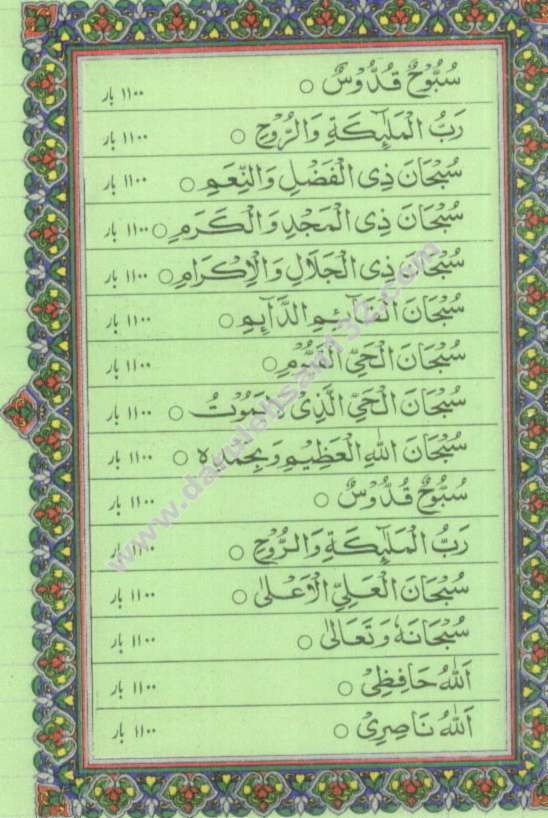 سُبُّوحٌ قُدُّوسٌ ○ ۱۱۰۰ بار
رَبُّ الْمَلٰٓئِكَةِ وَالرُّوْحِ ○ ۱۱۰۰ بار
سُبْحَانَ ذِی الْفَضْلِ وَالنِّعَمِ ○ ۱۱۰۰ بار
سُبْحَانَ ذِی الْمَجْدِ وَالْكَرَمِ ○ ۱۱۰۰ بار
سُبْحَانَ ذِی الْجَلَالِ وَالْاِكْرَامِ ○ ۱۱۰۰ بار
سُبْحَانَ الْقَآئِمِ الدَّآئِمِ ○ ۱۱۰۰ بار
سُبْحَانَ الْحَیِّ الْقَیُّوْمِ ○ ۱۱۰۰ بار
سُبْحَانَ الْحَیِّ الَّذِیْ لَا یَمُوْتُ ○ ۱۱۰۰ بار
سُبْحَانَ اللهِ الْعَظِیْمِ وَبِحَمْدِهٖ ○ ۱۱۰۰ بار
سُبُّوحٌ قُدُّوسٌ ○ ۱۱۰۰ بار
رَبُّ الْمَلٰٓئِكَةِ وَالرُّوْحِ ○ ۱۱۰۰ بار
سُبْحَانَ الْعَلِیِّ الْاَعْلٰی ○ ۱۱۰۰ بار
سُبْحَانَهٗ وَتَعَالٰی ○ ۱۱۰۰ بار
اَللهُ حَافِظِیْ ○ ۱۱۰۰ بار
اَللهُ نَاصِرِیْ ○ ۱۱۰۰ بار